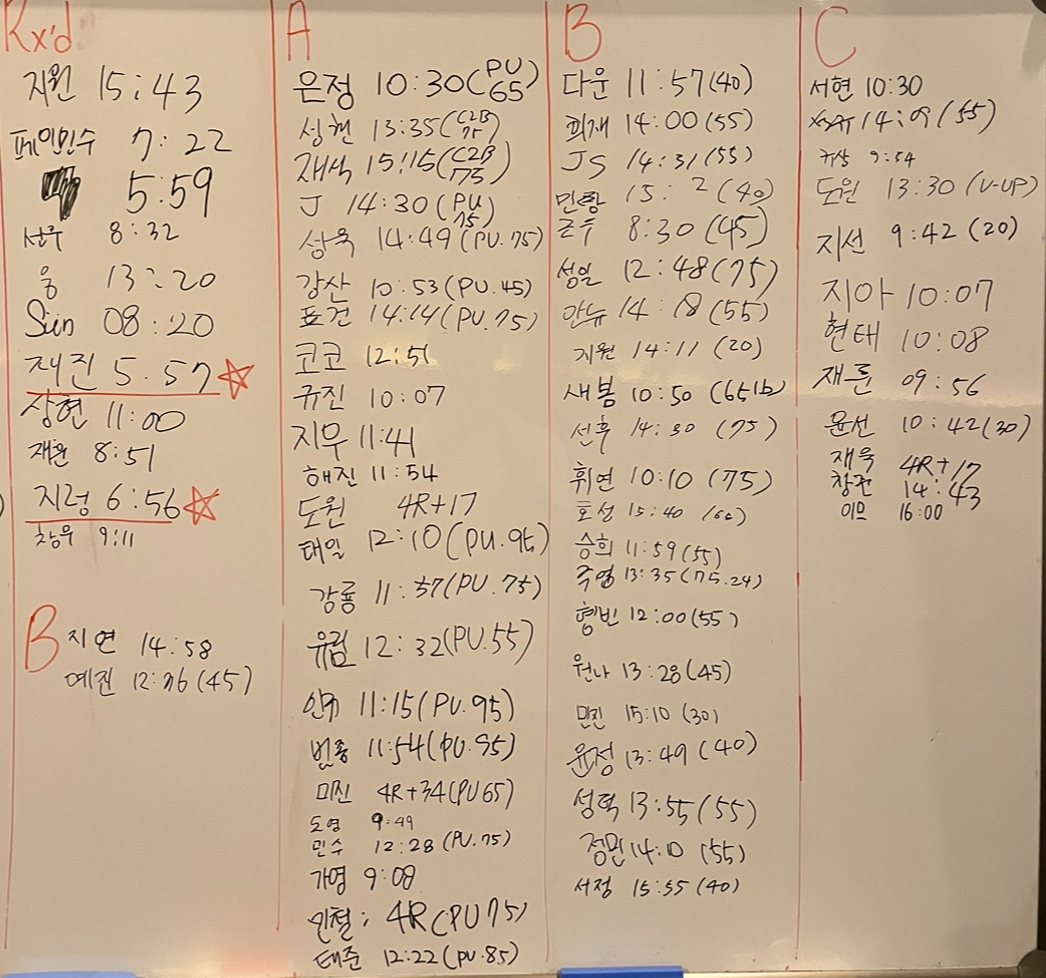 Rx'd
지원 15:43
페이민수 7:22
5:59
선우 8:32
웅 13:20
Sun 08:20
재진 5:57
상현 11:00
재윤 8:51
지렁 6:56
창우 9:11
B
지연 14:58
예진 12:36 (45)
A
은정 10:30 (PU 65)
성현 13:35 (C2B 75)
재석 15:15 (C2B 75)
J 14:30 (PU 75)
상욱 14:49 (PU.75)
강산 10:53 (PU.45)
표건 14:14 (PU.75)
코코 12:51
규진 10:07
지우 11:41
해진 11:54
도원 4R+17
태일 12:10 (PU.95)
강룡 11:37 (PU.75)
유림 12:32 (PU.55)
11:15 (PU.95)
번종 11:54 (PU.95)
미진 4R+34 (PU65)
도영 9:49
민수 12:28 (PU.75)
가영 9:08
인철: 4R (PU75)
태준 12:22 (PU.85)
B
다운 11:57 (40)
희재 14:00 (55)
JS 14:31 (55)
민랑 15: 2 (40)
군수 8:30 (45)
성일 12:48 (75)
만뉴 14:18 (55)
지원 14:11 (20)
새봄 10:50 (65lb)
선후 14:30 (75)
휘연 10:10 (75)
호성 15:40
승희 11:59 (55)
주영 13:35 (75.24)
형빈 12:00 (55)
원나 13:28 (45)
민진 15:10 (30)
윤성 13:49 (40)
성덕 13:55 (55)
정민 14:10 (55)
서정 15:55 (40)
C
서현 10:30
14:09 (55)
9:54
도원 13:30 (V-UP)
지선 9:42 (20)
지아 10:07
현태 10:08
재훈 09:56
윤선 10:42 (30)
재욱 4R+17
창건 14:43
이므 16:00